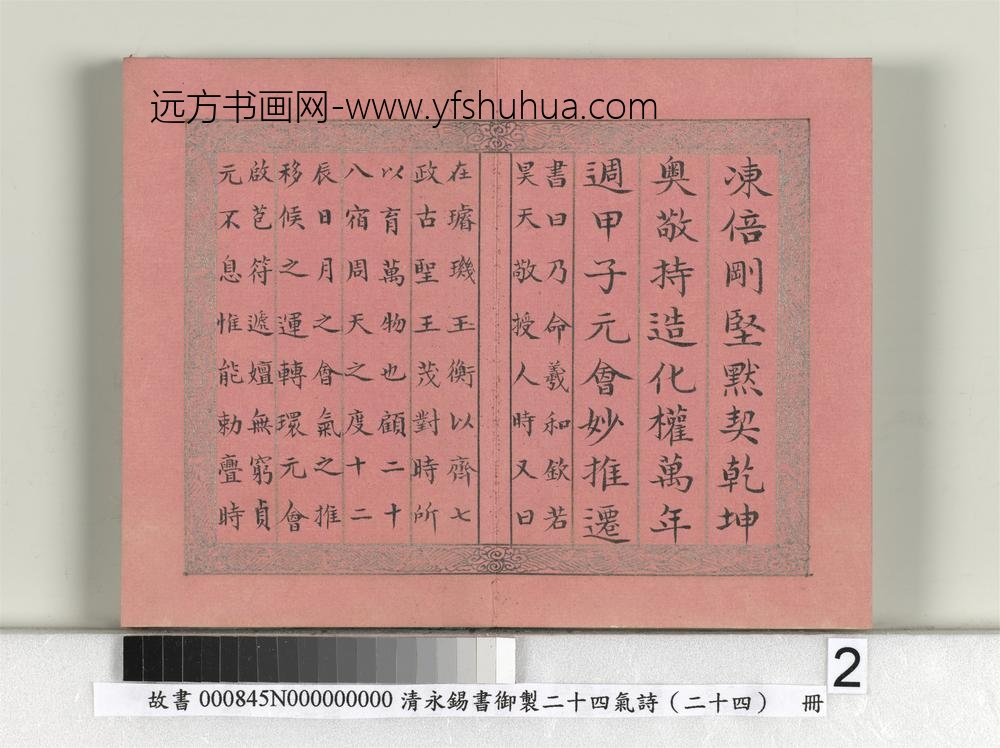 远方书画网-www.yfshuhua.com
凍倍剛堅默契乾坤
奧敬持造化權萬年
週甲子元會妙推遷
書曰乃命羲和欽若
昊天敬授人時又曰
在璿璣玉衡以齊七
政古聖王茂對時所
以育萬物也顧二十
八宿周天之度十二
辰日月之會氣之推
移候之運轉環元會
啟苞符遞嬗無窮貞
元不息惟能勅亹時
2
故書 000845N000000000 清永錫書御製二十四氣詩（二十四） 冊